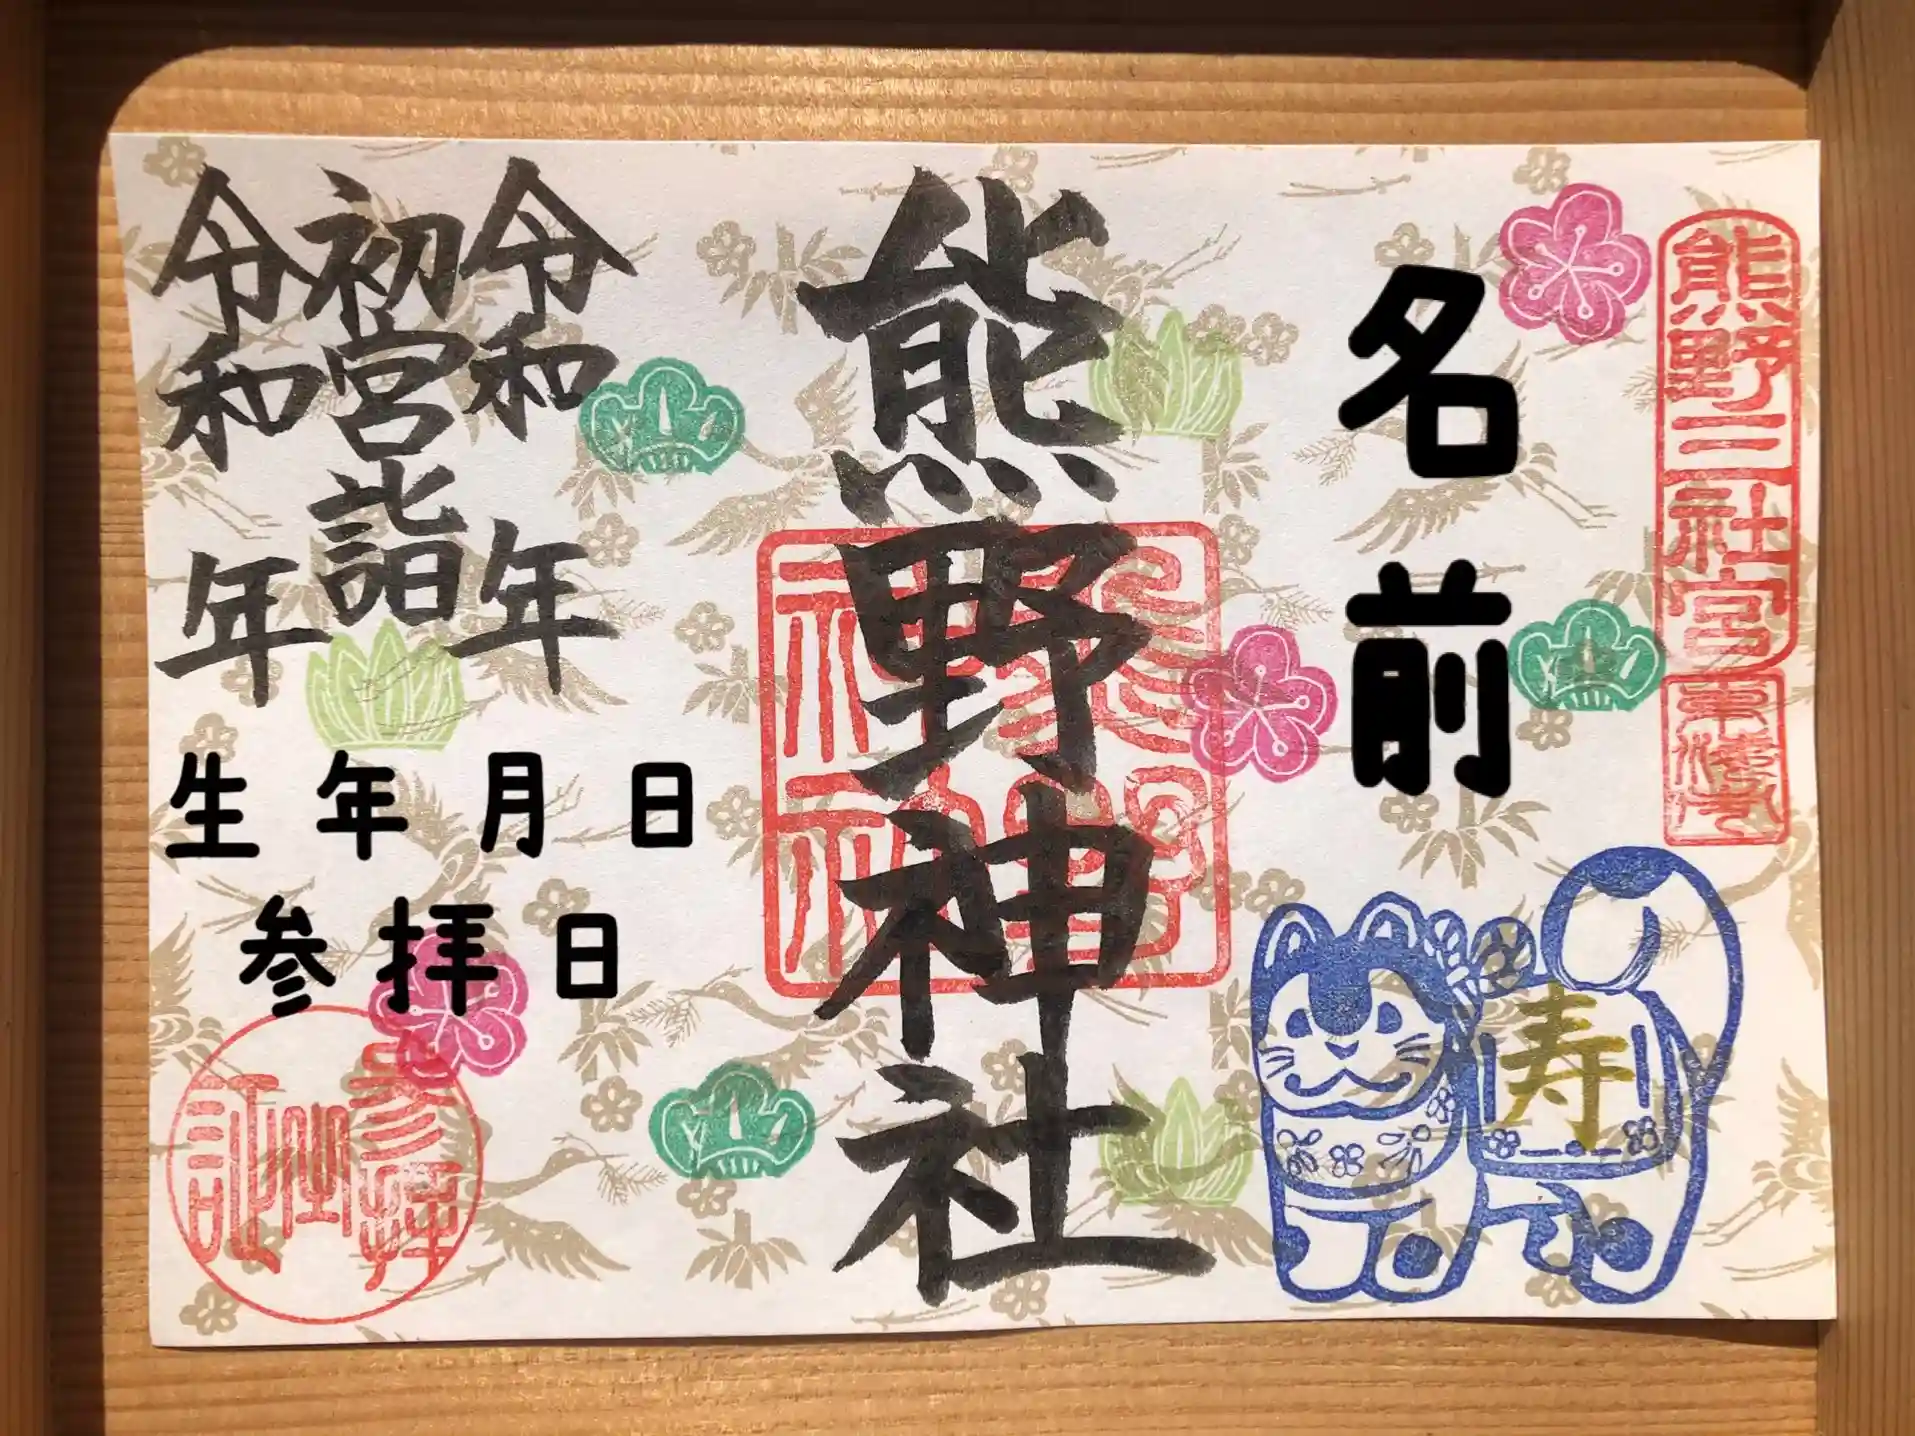 熊野三社宮
名前
寿
熊野神社
令和　年
初宮詣
令和　年
生年月日
参拝日
参拝之証